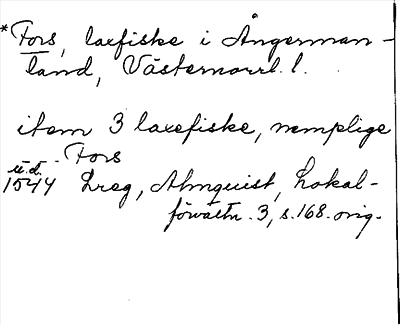 *Fors, laxfiske i Ångerman-
land, Västernorrl. l.
item 3 laxefiske, nemplige
Fors
u.d.
1544 Lreg, Almquist, Lokal-
förvaltn. 3, s. 168. orig.